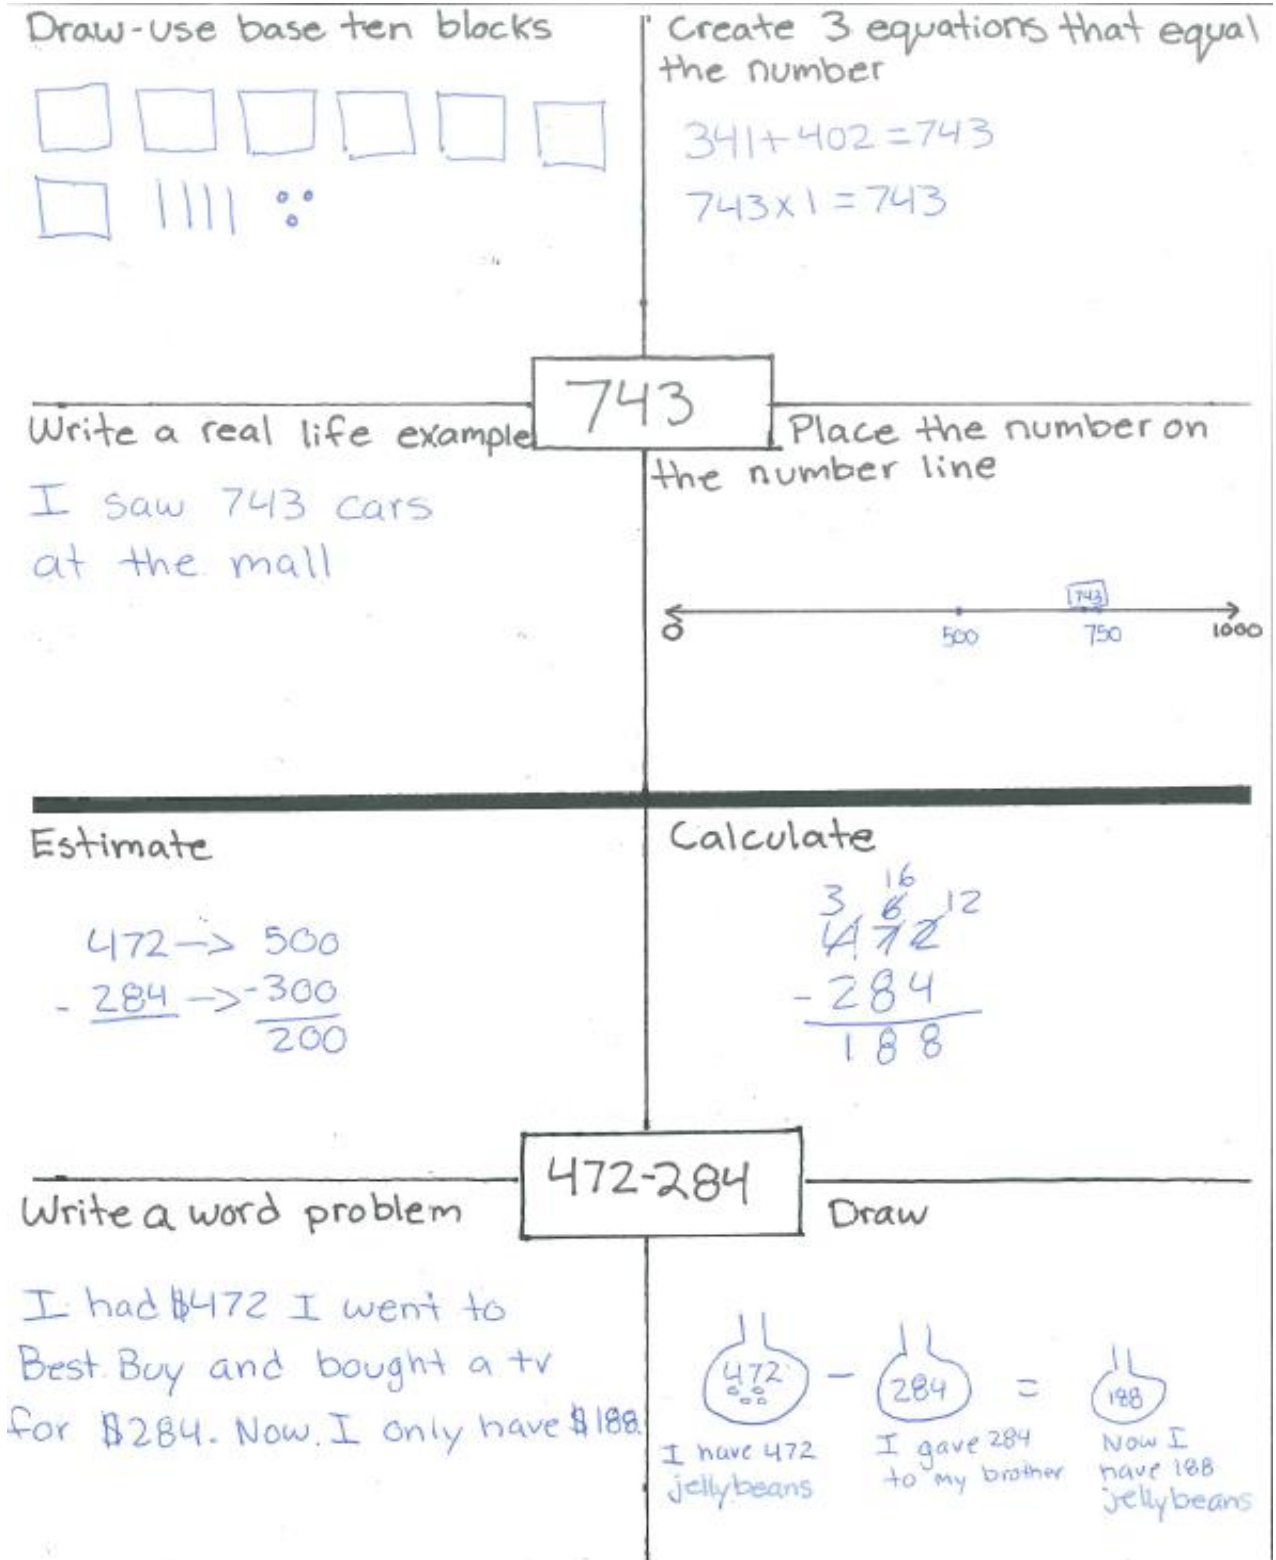 Draw-use base ten blocks
Create 3 equations that equal
the number
341+402=743
743x1=743
743
Write a real life example
I saw 743 cars
at the mall
Place the number on
the number line
743
0 500 750 1000
Estimate
472-> 500
- 284 ->-300
200
Calculate
16
3 6 12
472
- 284
188
472-284
Write a word problem
I had $472 I went to
Best Buy and bought a tv
for $284. Now I only have $188
Draw
472 - 284 = 188
I have 472
jellybeans
I gave 284
to my brother
Now I
have 188
jellybeans